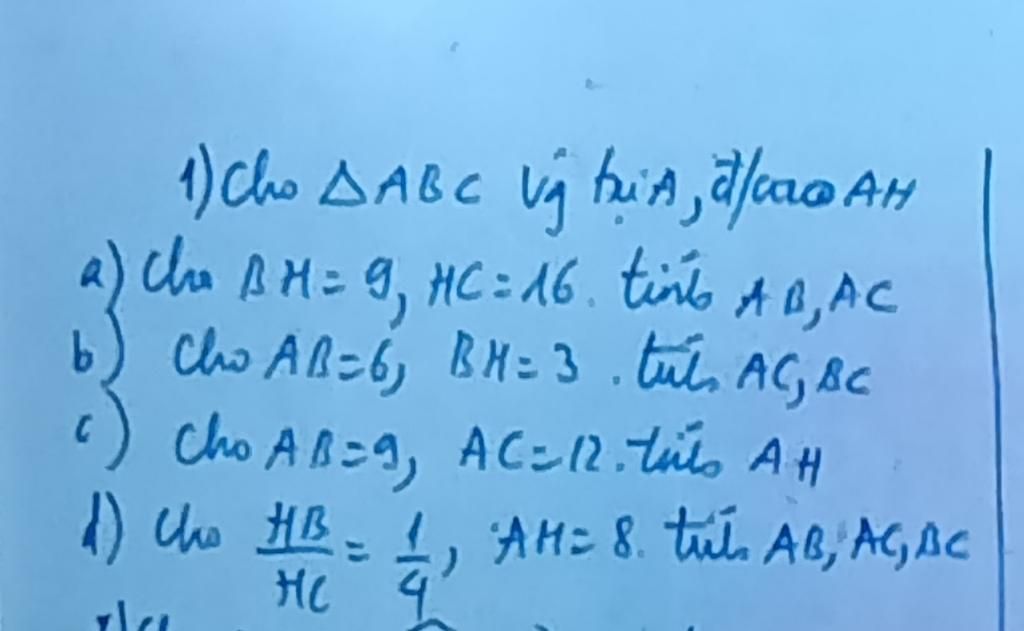 1) Cho △ABC vg tại A, đ/cao AH
a) Cho BH = 9, HC = 16. tính AB, AC
b) Cho AB = 6, BH = 3. tính AC, BC
c) Cho AB = 9, AC = 12. tính AH
d) Cho HB/HC = 1/4, AH = 8. tính AB, AC, BC